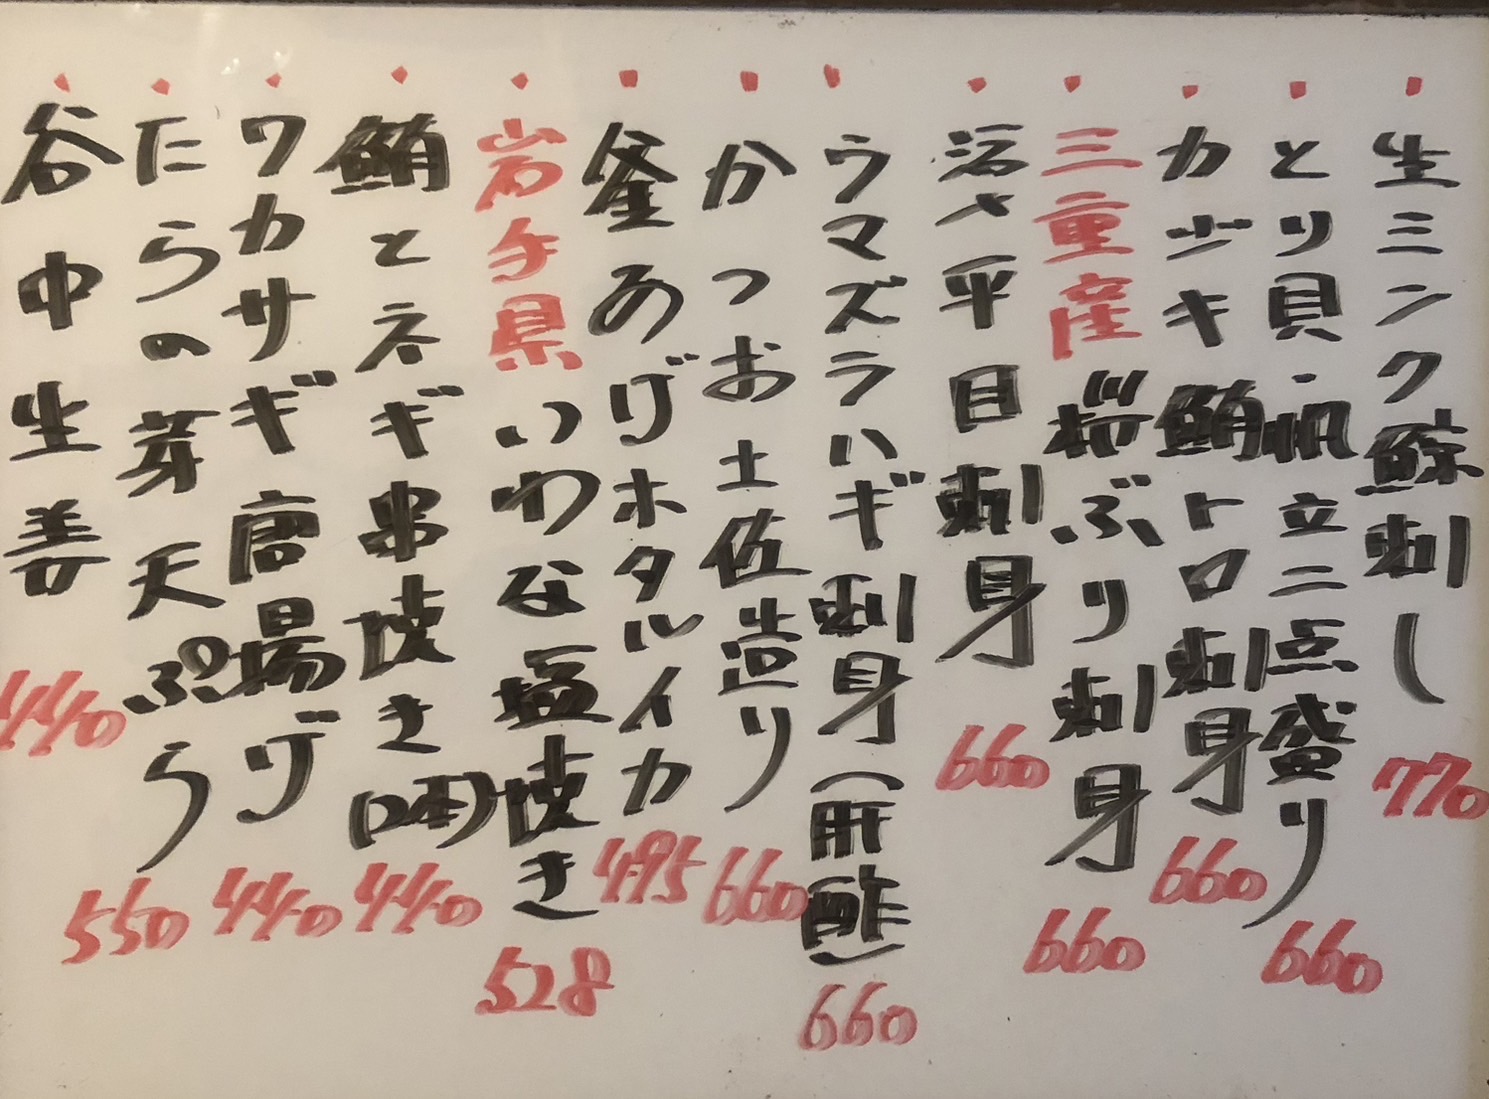 生ミンク鯨刺し 770
とり貝・帆立二点盛り 660
カジキ鮪トロ刺身 660
三重産桜ぶり刺身 660
活〆平目刺身 660
ウマズラハギ刺身(肝酢) 660
かつお土佐造り 660
釜あげホタルイカ 495
岩手県いわな塩焼き 528
鮪とネギ串焼き(2本) 440
ワカサギ唐揚げ 440
たらの芽天ぷら 550
谷中生姜 440